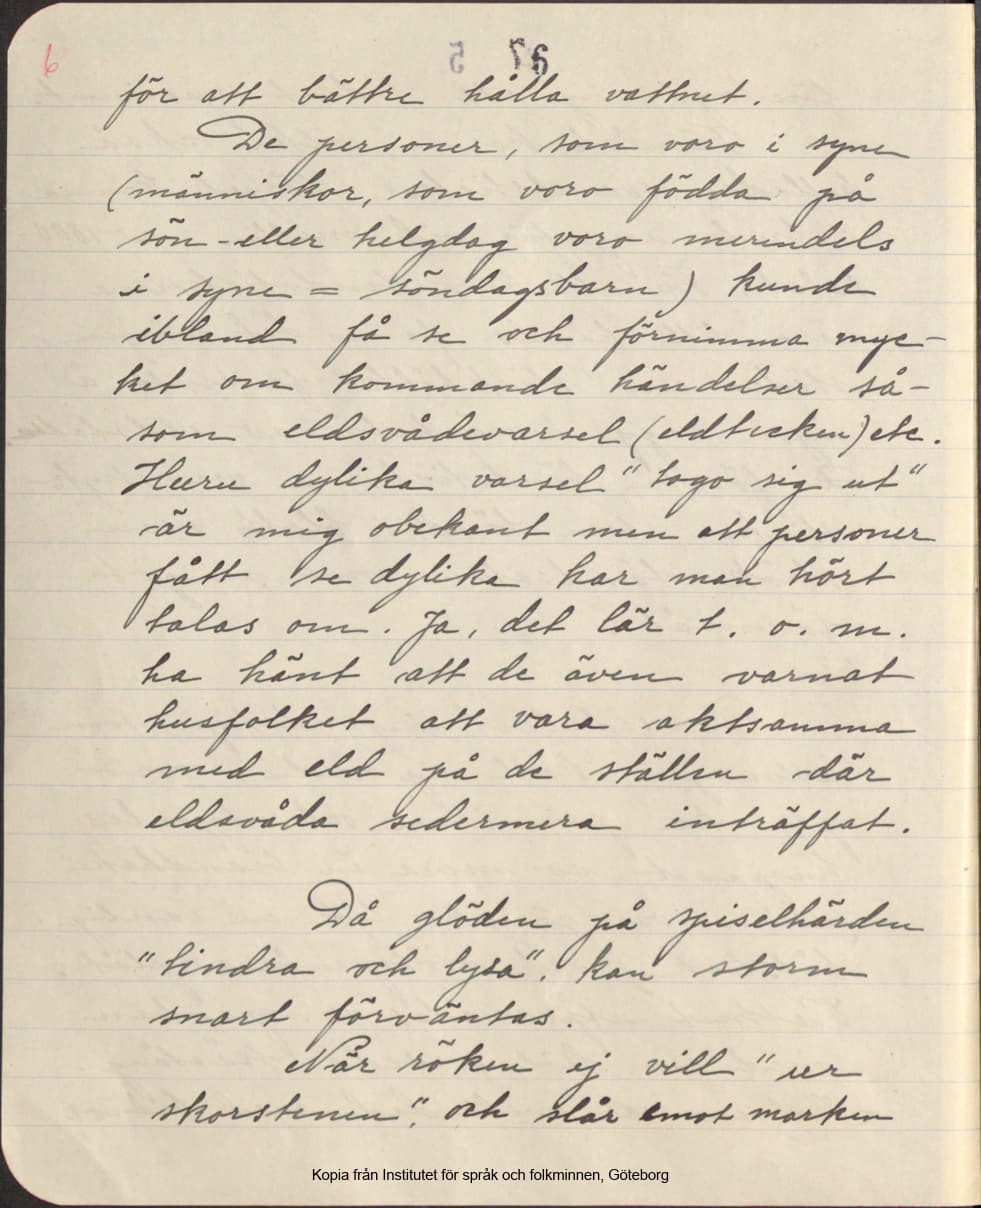 6
5 97
för att bättre hålla vattnet.
De personer, som voro i syne
(människor, som voro födda på
sön-eller helgdag voro merendels
i syne = söndagsbarn) kunde
ibland få se och förnimma myc-
ket om kommande händelser så-
som eldsvådevarsel (eldtecken) etc.
Huru dylika varsel "togo sig ut"
är mig obekant men att personer
fått se dylika har man hört
talas om. Ja, det lär t. o. m.
ha hänt att de även varnat
husfolket att vara aktsamma
med eld på de ställen där
eldsvåda sedermera inträffat.
Då glöden på spiselhärden
"tindra och lysa". kan storm
snart förväntas.
När röken ej vill "ur
skorstenen", och slår emot marken
Kopia från Institutet för språk och folkminnen, Göteborg